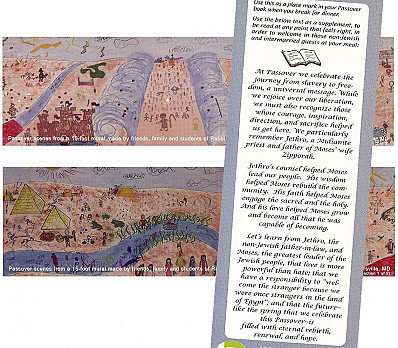 Use this as a place mark in your Passover
book when you break for dinner.
Use the below text as a supplement, to
be read at any point that feels right, in
order to welcome in those non-Jewish
and intermarried guests at your meal:
At Passover we celebrate the
journey from slavery to free-
dom, a universal message. While
we rejoice over our liberation,
we must also recognize those
whose courage, inspiration,
direction, and sacrifice helped
us get here. We particularly
remember Jethro, a Midianite
priest and father of Moses' wife
Zipporah.
Jethro's counsel helped Moses
lead our people. His wisdom
helped Moses rebuild the com-
munity. His faith helped Moses
engage the sacred and the holy.
And his love helped Moses grow
and become all that he was
capable of becoming.
Let's learn from Jethro, the
non-Jewish father-in-law, and
Moses, the greatest leader of the
Jewish people, that love is more
powerful than hate; that we
have a responsibility to "wel-
come the stranger because we
were once strangers in the land
of Egypt"; and that the future–
like the spring that we celebrate
this Passover–is
filled with eternal rebirth,
renewal, and hope.
Passover scenes from a 15-foot mural made by friends, family and students of Rabbi
Passover scenes from a 15-foot mural made by friends, family and students of R
sville, MD